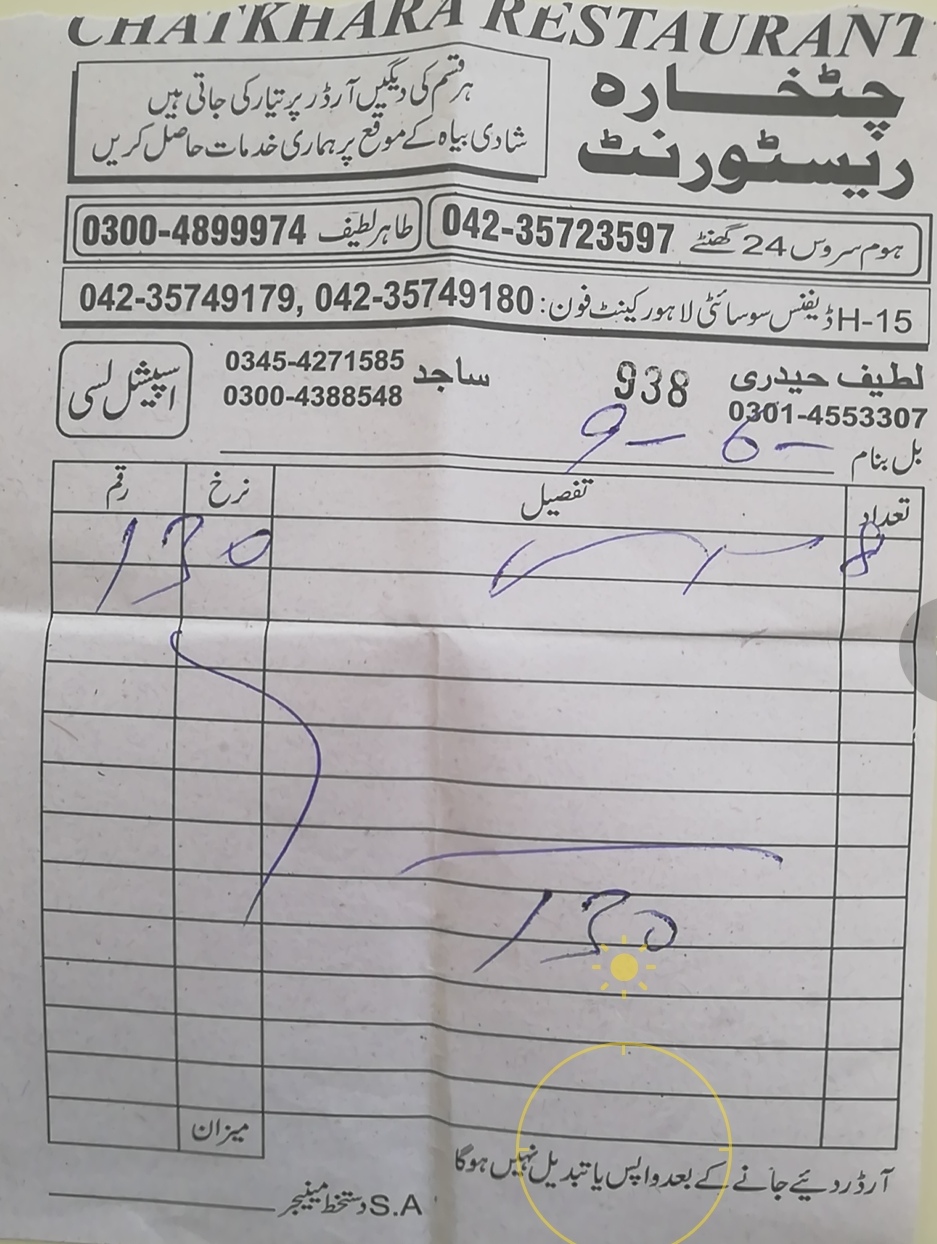 CHATKHARA RESTAURANT
چٹخارہ
ریسٹورنٹ
ہر قسم کی دیگیں آرڈر پر تیار کی جاتی ہیں
شادی بیاہ کے موقع پر ہماری خدمات حاصل کریں
ہوم سروس 24 گھنٹے 042-35723597
طاہر لطیف 0300-4899974
H-15 ڈیفنس سوسائٹی لاہور کینٹ فون: 042-35749179, 042-35749180
لطیف حیدری
0301-4553307
938
ساجد
0345-4271585
0300-4388548
اسپیشل لسی
بل بنام 9-6-
تعداد تفصیل نرخ رقم
8 130
130
میزان
آرڈر دئیے جانے کے بعد واپس یا تبدیل نہیں ہوگا
S.A دستخط مینیجر